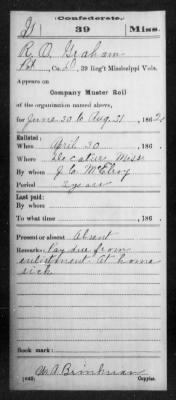 Confederate.
G 39 Miss.
R. D. Graham
Pvt, Co. D, 39 Reg't Mississippi Vols.
Appears on
Company Muster Roll
of the organization named above,
for June 30 to Aug. 31, 1862.
Enlisted:
When April 30, 186
Where Decatur Miss
By whom J. C. McElroy
Period 2 years
Last paid:
By whom
To what time , 186 .
Present or absent Absent
Remarks: Pay due from
enlistment. At home
sick
Book mark:
W. A. Brinkman
(642) Copyist.